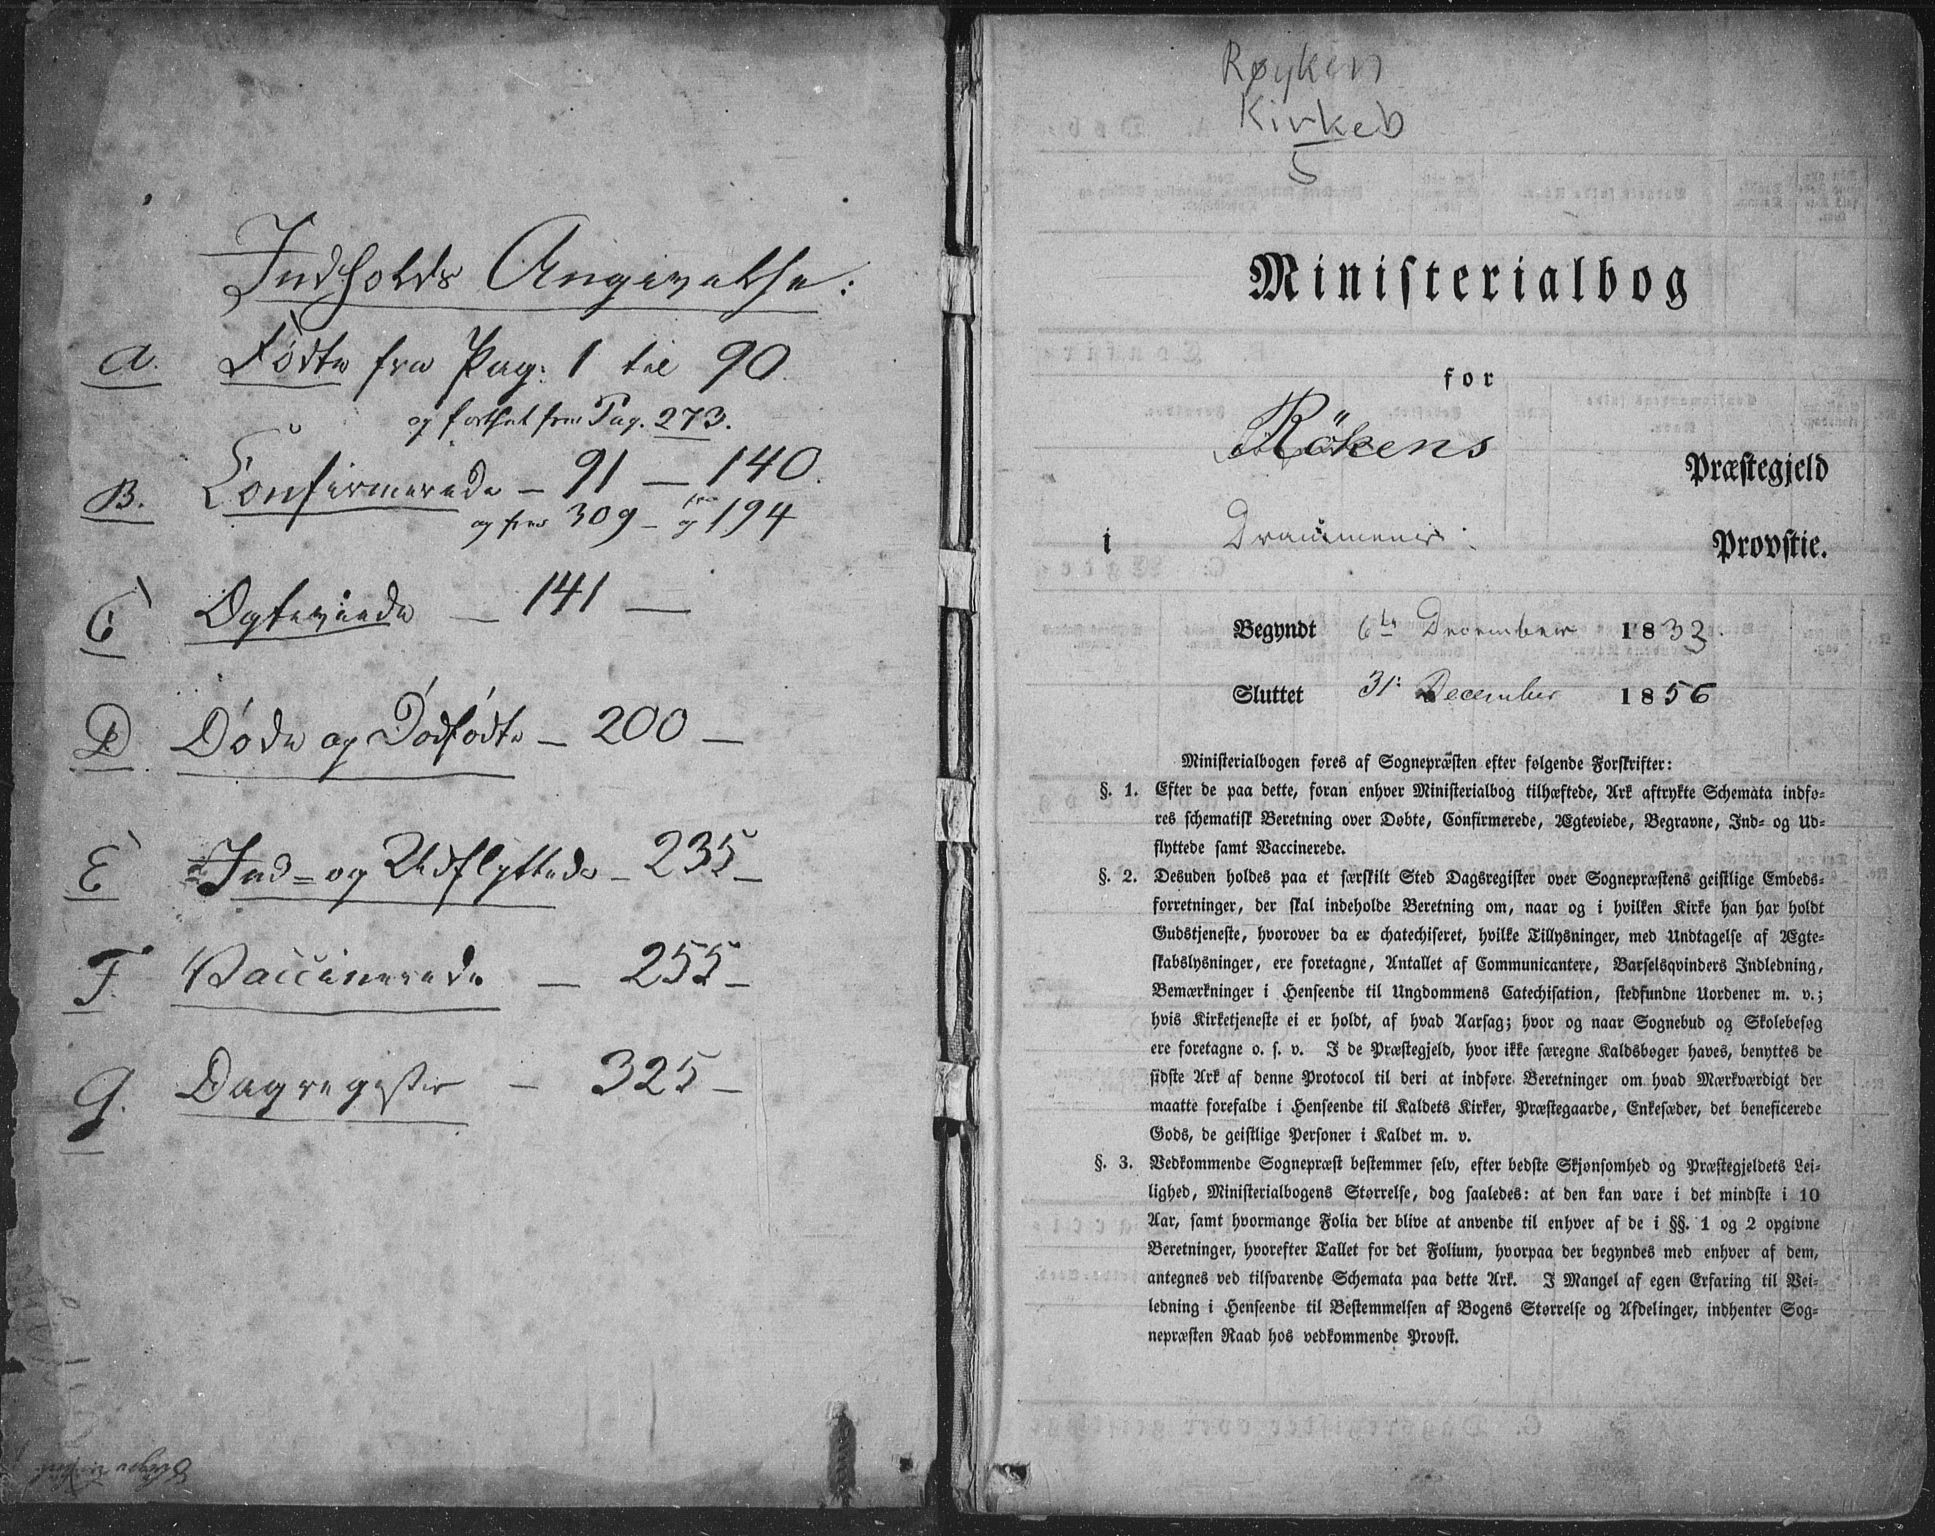 Indholds Angivelse:
A. Födte fra Pag: 1 til 90.
og fortsat fra Pag. 273.
B. Confirmerede – 91 – 140.
og fra 309 – og fra 194
C Ægteviede – 141 –
D Døde og Dødfødte – 200 –
E Ind= og Udflyttede – 235 –
F. Vaccinerede – 255 –
G. Dagregister – 325 –
Røyken
Kirkeb
5
Ministerialbog
for
Rökens Præstegjeld
i Drammens Provstie.
Begyndt 6te December 1833.
Sluttet 31: December 1856
Ministerialbogen føres af Sognepræsten efter følgende Forskrifter:
§. 1. Efter de paa dette, foran enhver Ministerialbog tilhæftede, Ark aftrykte Schemata indfø-
res schematisk Beretning over Døbte, Confirmerede, Ægteviede, Begravne, Ind- og Ud-
flyttede samt Vaccinerede.
§. 2. Desuden holdes paa et særskilt Sted Dagsregister over Sognepræstens geistlige Embeds-
forretninger, der skal indeholde Beretning om, naar og i hvilken Kirke han har holdt
Gudstjeneste, hvorover da er chatechiseret, hvilke Tillysninger, med Undtagelse af Ægte-
skabslysninger, ere foretagne, Antallet af Communicantere, Barselqvinders Indledning,
Bemærkninger i Henseende til Ungdommens Catechisation, stedfundne Uordener m. v.;
hvis Kirketjeneste ei er holdt, af hvad Aarsag; hvor og naar Sognebud og Skolebesøg
ere foretagne o. s. v. I de Præstegjeld, hvor ikke særegne Kaldsbøger haves, benyttes de
sidste Ark af denne Protocol til deri at indføre Beretninger om hvad Mærkværdigt der
maatte forefalde i Henseende til Kaldets Kirker, Præstegaarde, Enkesæder, det beneficerede
Gods, de geistlige Personer i Kaldet m. v.
§. 3. Vedkommende Sognepræst bestemmer selv, efter bedste Skjønsomhed og Præstegjeldets Lei-
lighed, Ministerialbogens Størrelse, dog saaledes: at den kan vare i det mindste i 10
Aar, samt hvormange Folia der blive at anvende til enhver af de i §§. 1 og 2 opgivne
Beretninger, hvorefter Tallet for det Folium, hvorpaa der begyndes med enhver af dem,
antegnes ved tilsvarende Schemata paa dette Ark. I Mangel af egen Erfaring til Vei-
ledning i Henseende til Bestemmelsen af Bogens Størrelse og Afdelinger, indhenter Sog-
nepræsten Raad hos vedkommende Provst.